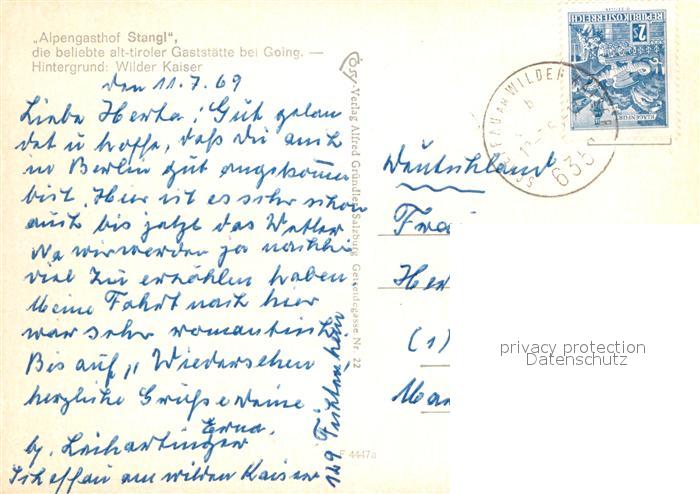 „Alpengasthof Stangl",
die beliebte alt-tiroler Gaststätte bei Going. —
Hintergrund: Wilder Kaiser
den 11.7.69
Liebe Herta! Gut gelan
det u hoffe, daß du auch
in Berlin gut angekommen
bist. Hier ist es sehr schön
auch bis jetzt das Wetter
Na wir werden ja nachher
viel zu erzählen haben.
Meine Fahrt nach hier
war sehr romantisch
Bis auf „Wiedersehen
herzliche Grüße deine
Erna.
bj. Leihartinger
Scheffau am wilden Kaiser
149
-Verlag Alfred Gründler, Salzburg Getreidegasse Nr. 22
F 4447a
REPUBLIK ÖSTERREICH
2 S
KLAGENFURT
SCHEFFAU AM WILDEN KAISER
6351
Deutschland
Fra
Her
(1)
Mar
privacy protection
Datenschutz